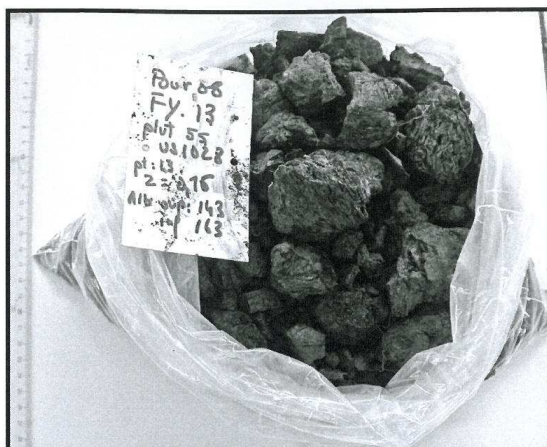 Pour 86
FY. 13
plut 55
US 1028
pt: 13
Z = 0,16
Alt sup: 143
inf 163